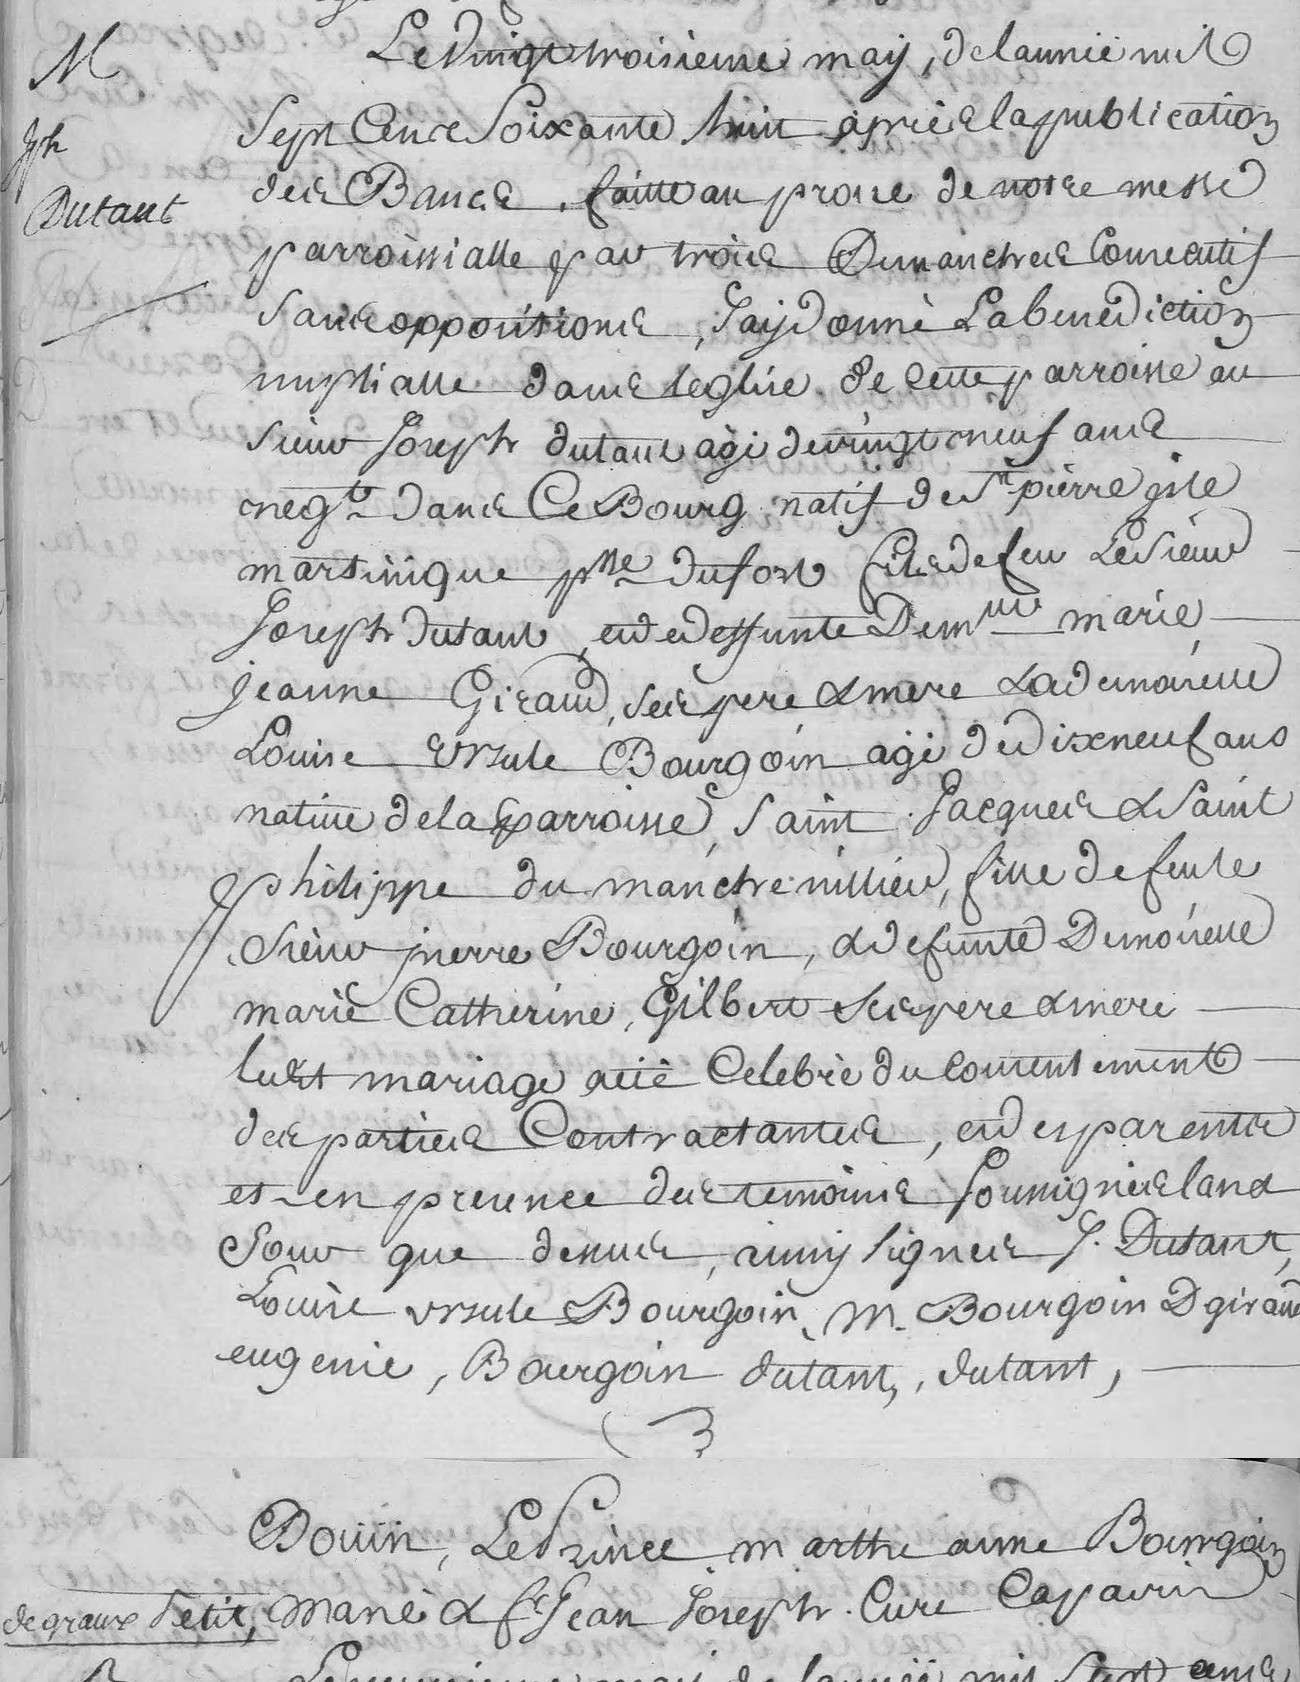 M
Jph
Dutaut
Le vingt troisieme may, de lannéé mil
sept Cents soixante huit aprés la publication
des Bancs, faitte au prone de notre messe
parroissialle par trois Dimanches Consecutifs
sans oppositions, Jay donné La benediction
nuptialle dans leglise de Cette parroisse au
Sieur Joseph dutaut agé de vingt neuf ans
negt. dans Ce Bourg natif de St pierre isle
martinique psse du fort fils de feu Le Sieur
Joseph dutaut, et de deffunte Demlle marie
jeanne Giraud, ses pere & mere & la demoiselle
Louise Ursule Bourgoin agé de dixneuf ans
native de la parroisse, Saint Jacques & Saint
philippe du manchenillier, fille de feu le
Sieur pierre Bourgoin, & defunte Demoiselle
marie Catherine, Gilbert ses pere & mere
ludt mariage a eté Celebré du Consentement
des parties Contractantes, et des parents
et en presence des temoins soussignés lan &
Jour que dessus, ainsy signés J. Dutaut,
Louise Ursule Bourgoin, M. Bourgoin D giraud
eugenie, Bourgoin dutant, dutant,
Doüin, LePrince marthe anne Bourgoin
degraux Petit, Marie & fr Jean Joseph. Cure Capucin